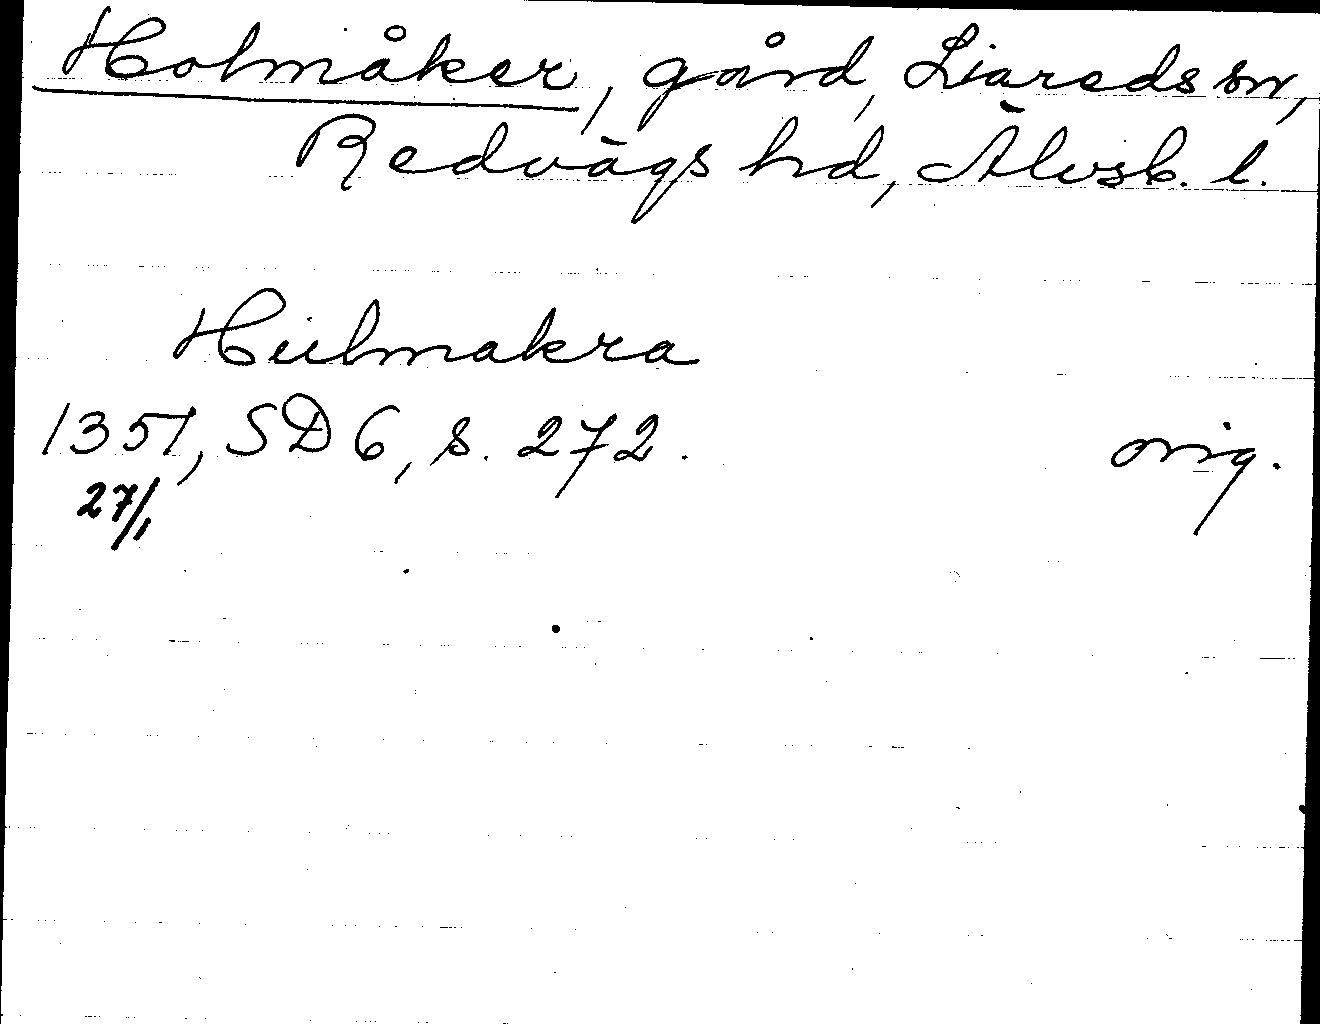 Holmåker, gård, Liareds sn,
Redvägs hd, Älvsb. l.
Hulmakra
1351, SD 6, s. 272. orig.
27/1